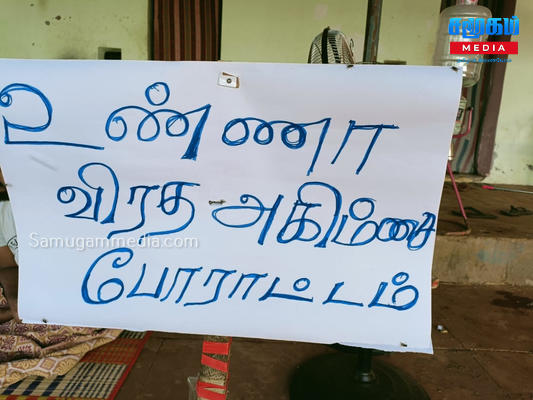 சமூகம்
MEDIA
உண்ணா
விரத அகிம்சை
Samugammedia.com
போராட்டம்